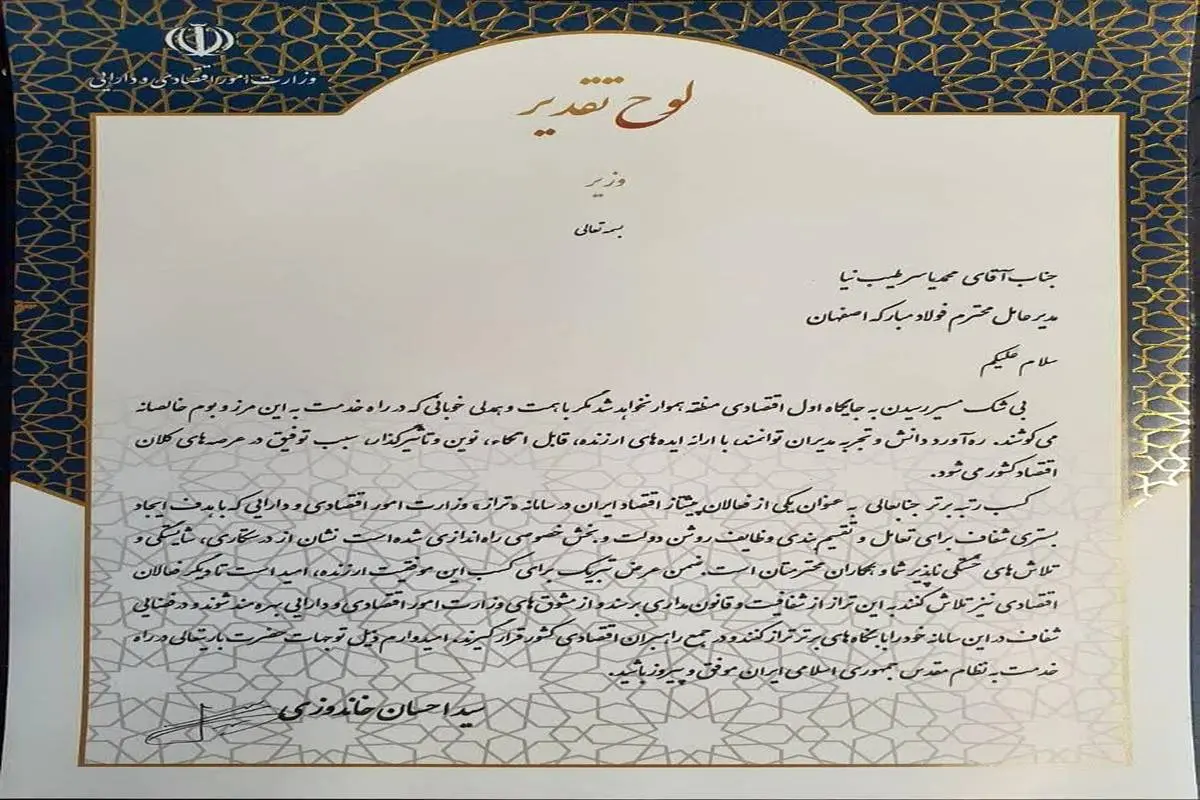 وزارت امور اقتصادی و دارایی
لوح تقدیر
وزیر
بسمه تعالی
جناب آقای محمدیاسر طیب نیا
مدیرعامل محترم فولاد مبارکه اصفهان
سلام علیکم
بی شک مسیر رسیدن به جایگاه اول اقتصادی منطقه هموار نخواهد شد مگر با همت و همدلی خوبانی که در راه خدمت به این مرز و بوم خالصانه
می کوشند. ره آورد دانش و تجربه مدیران توانمند، با ارائه ایده های ارزنده، قابل اتکاء، نوین و تاثیرگذار، سبب توفیق در عرصه های کلان
اقتصاد کشور می شود.
کسب رتبه برتر جنابعالی به عنوان یکی از فعالان پیشتاز اقتصاد ایران در سامانه «تراز» وزارت امور اقتصادی و دارایی که با هدف ایجاد
بستری شفاف برای تعامل و تقسیم بندی وظایف روشن دولت و بخش خصوصی راه اندازی شده است نشان از درستکاری، شایستگی و
تلاش های خستگی ناپذیر شما و همکاران محترمتان است. ضمن عرض تبریک برای کسب این موفقیت ارزنده، امید است تا دیگر فعالان
اقتصادی نیز تلاش کنند به این تراز از شفافیت و قانون مداری برسند و از مشوق های وزارت امور اقتصادی و دارایی بهره مند شوند و در فضایی
شفاف در این سامانه خود را با بنگاه های برتر تراز کنند و در جمع راهبران اقتصادی کشور قرار گیرند. امیدوارم ذیل توجهات حضرت باریتعالی در راه
خدمت به نظام مقدس جمهوری اسلامی ایران موفق و پیروز باشید.
سید احسان خاندوزی